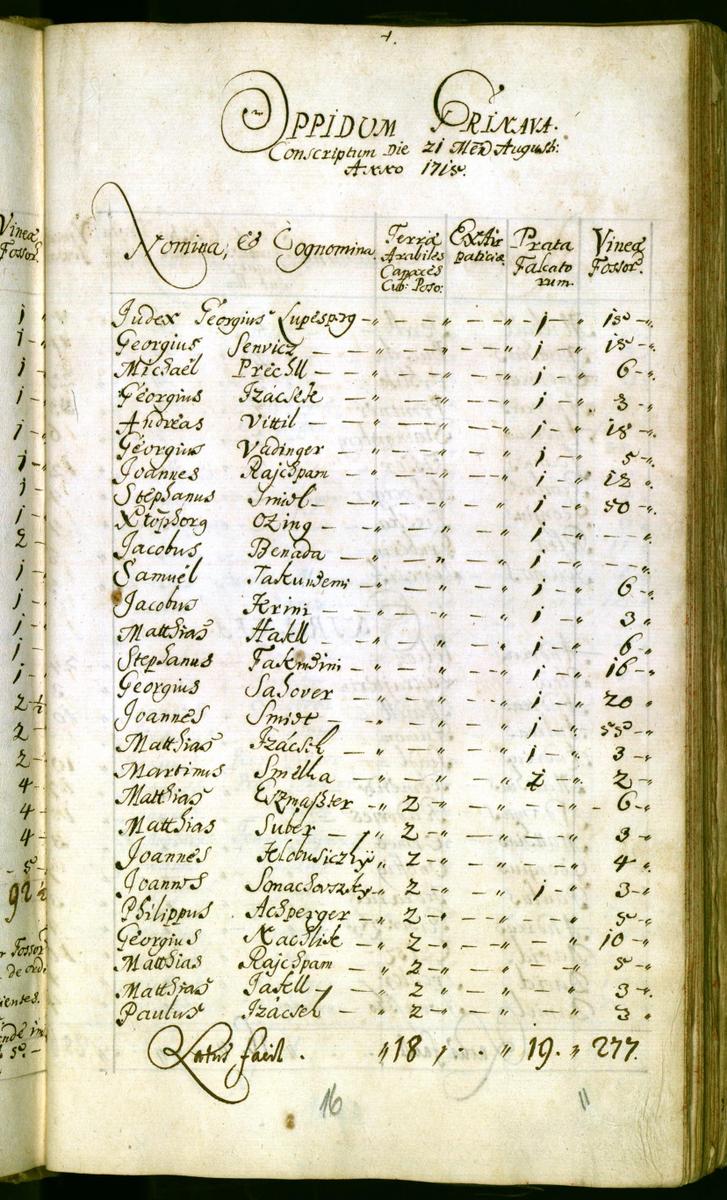 4.
OPPIDUM GRINAVA.
Conscriptum Die 21 Men Augusti:
ANNO 1715.
Nomina, & Cognomina
Terræ Arabiles Capaces Cub: Poso:
Exstirpatitiæ
Prata Falcatorum
Vineæ Fossor.
Judex Georgius Lupésprg -"- - "- - "- 1 -" 15 -"
Georgius Senvicz - -"- - "- - "- 1 -" 15 -"
Michaël Prechll - -"- - "- - "- 1 -" 6 -"
Georgius Izácsek -"- - "- - "- 1 -" 3 -"
Andreas Vittil - -"- - "- - "- 1 -" 18 -"
Georgius Vadinger -"- - "- - "- 1 -" 5 -"
Joannes Rajchpam -"- - "- - "- 1 -" 12 "
Stephanus Smidl - -"- - "- - "- 1 -" 50 -"
Otzing - -"- - "- - "- 1 -" - - -"
Jacobus Benada -"- - "- - "- 1 -" - - -"
Samuël -"- - "- - "- 1 -" 6 -"
Jacobus Krini -"- - "- - "- 1 -" 3 "
Matthias Hakll -"- - "- - "- 1 -" 6 -"
Stephanus -"- - "- - "- 1 -" 16 -"
Georgius Sahover -"- - "- - "- 1 -" 20 "
Joannes Smidt -"- - "- - "- 1 -" 55 -"
Matthias Izácsek -"- - "- - "- 1 -" 3 -"
Martinus Smelka -"- - "- - "- 1 -" 2 -"
Matthias Eszmaszter -" 2 -"- - "- - " - 6 -"
Matthias Suber -" 2 -"- - "- - " 3 -"
Joannes Klobusiczky -" 2 -"- - "- - " 4 "
Joannes Smachovszky -" 2 -"- - "- 1 -" 3 -"
Philippus Achperger -" 2 -"- - "- - " 5 -"
Georgius Nachlik -" 2 -"- - "- - " 10 -"
Matthias Rajchpam -" 2 -"- - "- - " 5 -"
Matthias Jakll -" 2 -"- - "- - " 3 -"
Paulus Izácsek -" 2 -"- - "- - " 3 "
Latus facit. " 18 " - - " 19. " 277.
16 11
1 "
1 -
1
1
1
1 "
1 -
1
2 -
1
1
1
1 -
1 -
2 ½
2
2
4 -
4 -
4 -
- 5 -
92 ½